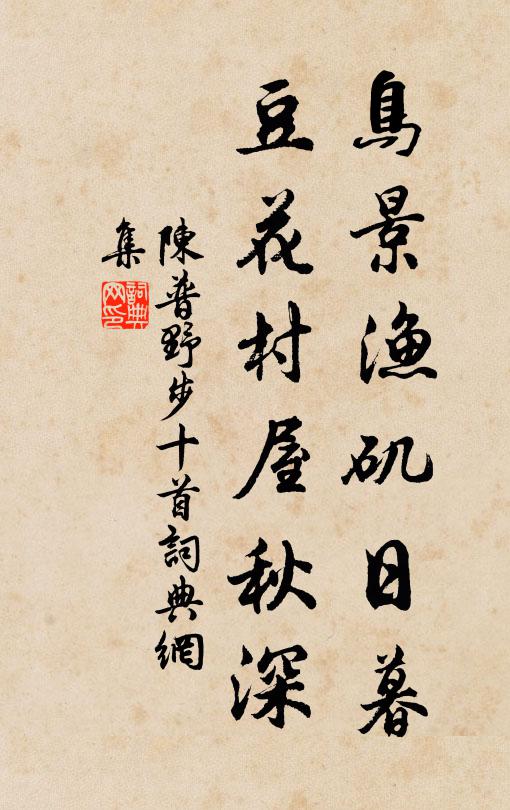 鳥景漁矶日暮
豆花村屋秋深
陳普野步十首詞典網
集
詞典网印